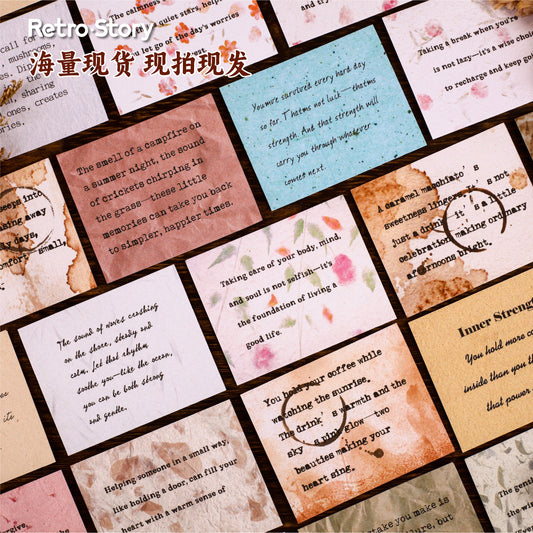 Retro Story
海量现货 现拍现发
call for
mushrooms,
sharing
ones, creates
ories.
The calmness
quiet stars, helps
you let go of the day's worries
Taking a break when you're
is not lazy—it's a wise choice
to recharge and keep going
The smell of a campfire on
a summer night, the sound
of crickets chirping in
the grass——these little
memories can take you back
to simpler, happier times.
You've survived every hard day
so far. Thatms not luck——thatms
strength. And that strength will
carry you through whatever
comes next.
eeps into
away
days,
comfort
small,
A caramel macchiato's
sweetness lingers. It's not
just a drink—it's a little
celebration making ordinary
afternoons bright.
The sound of waves crashing
on the shore, steady and
calm. Let that rhythm
soothe you—like the ocean,
you can be both strong
and gentle.
Taking care of your body, mind,
and soul is not selfish—it's
the foundation of living a
good life.
Inner Strength
You hold more co
inside than you th
that power
its
Helping someone in a small way,
like holding a door, can fill your
heart with a warm sense of
You hold your coffee while
watching the sunrise.
The drink's warmth and the
sky's pink glow—two
beauties making your
heart sing.
take you make is
failure, but
The gentle
the win